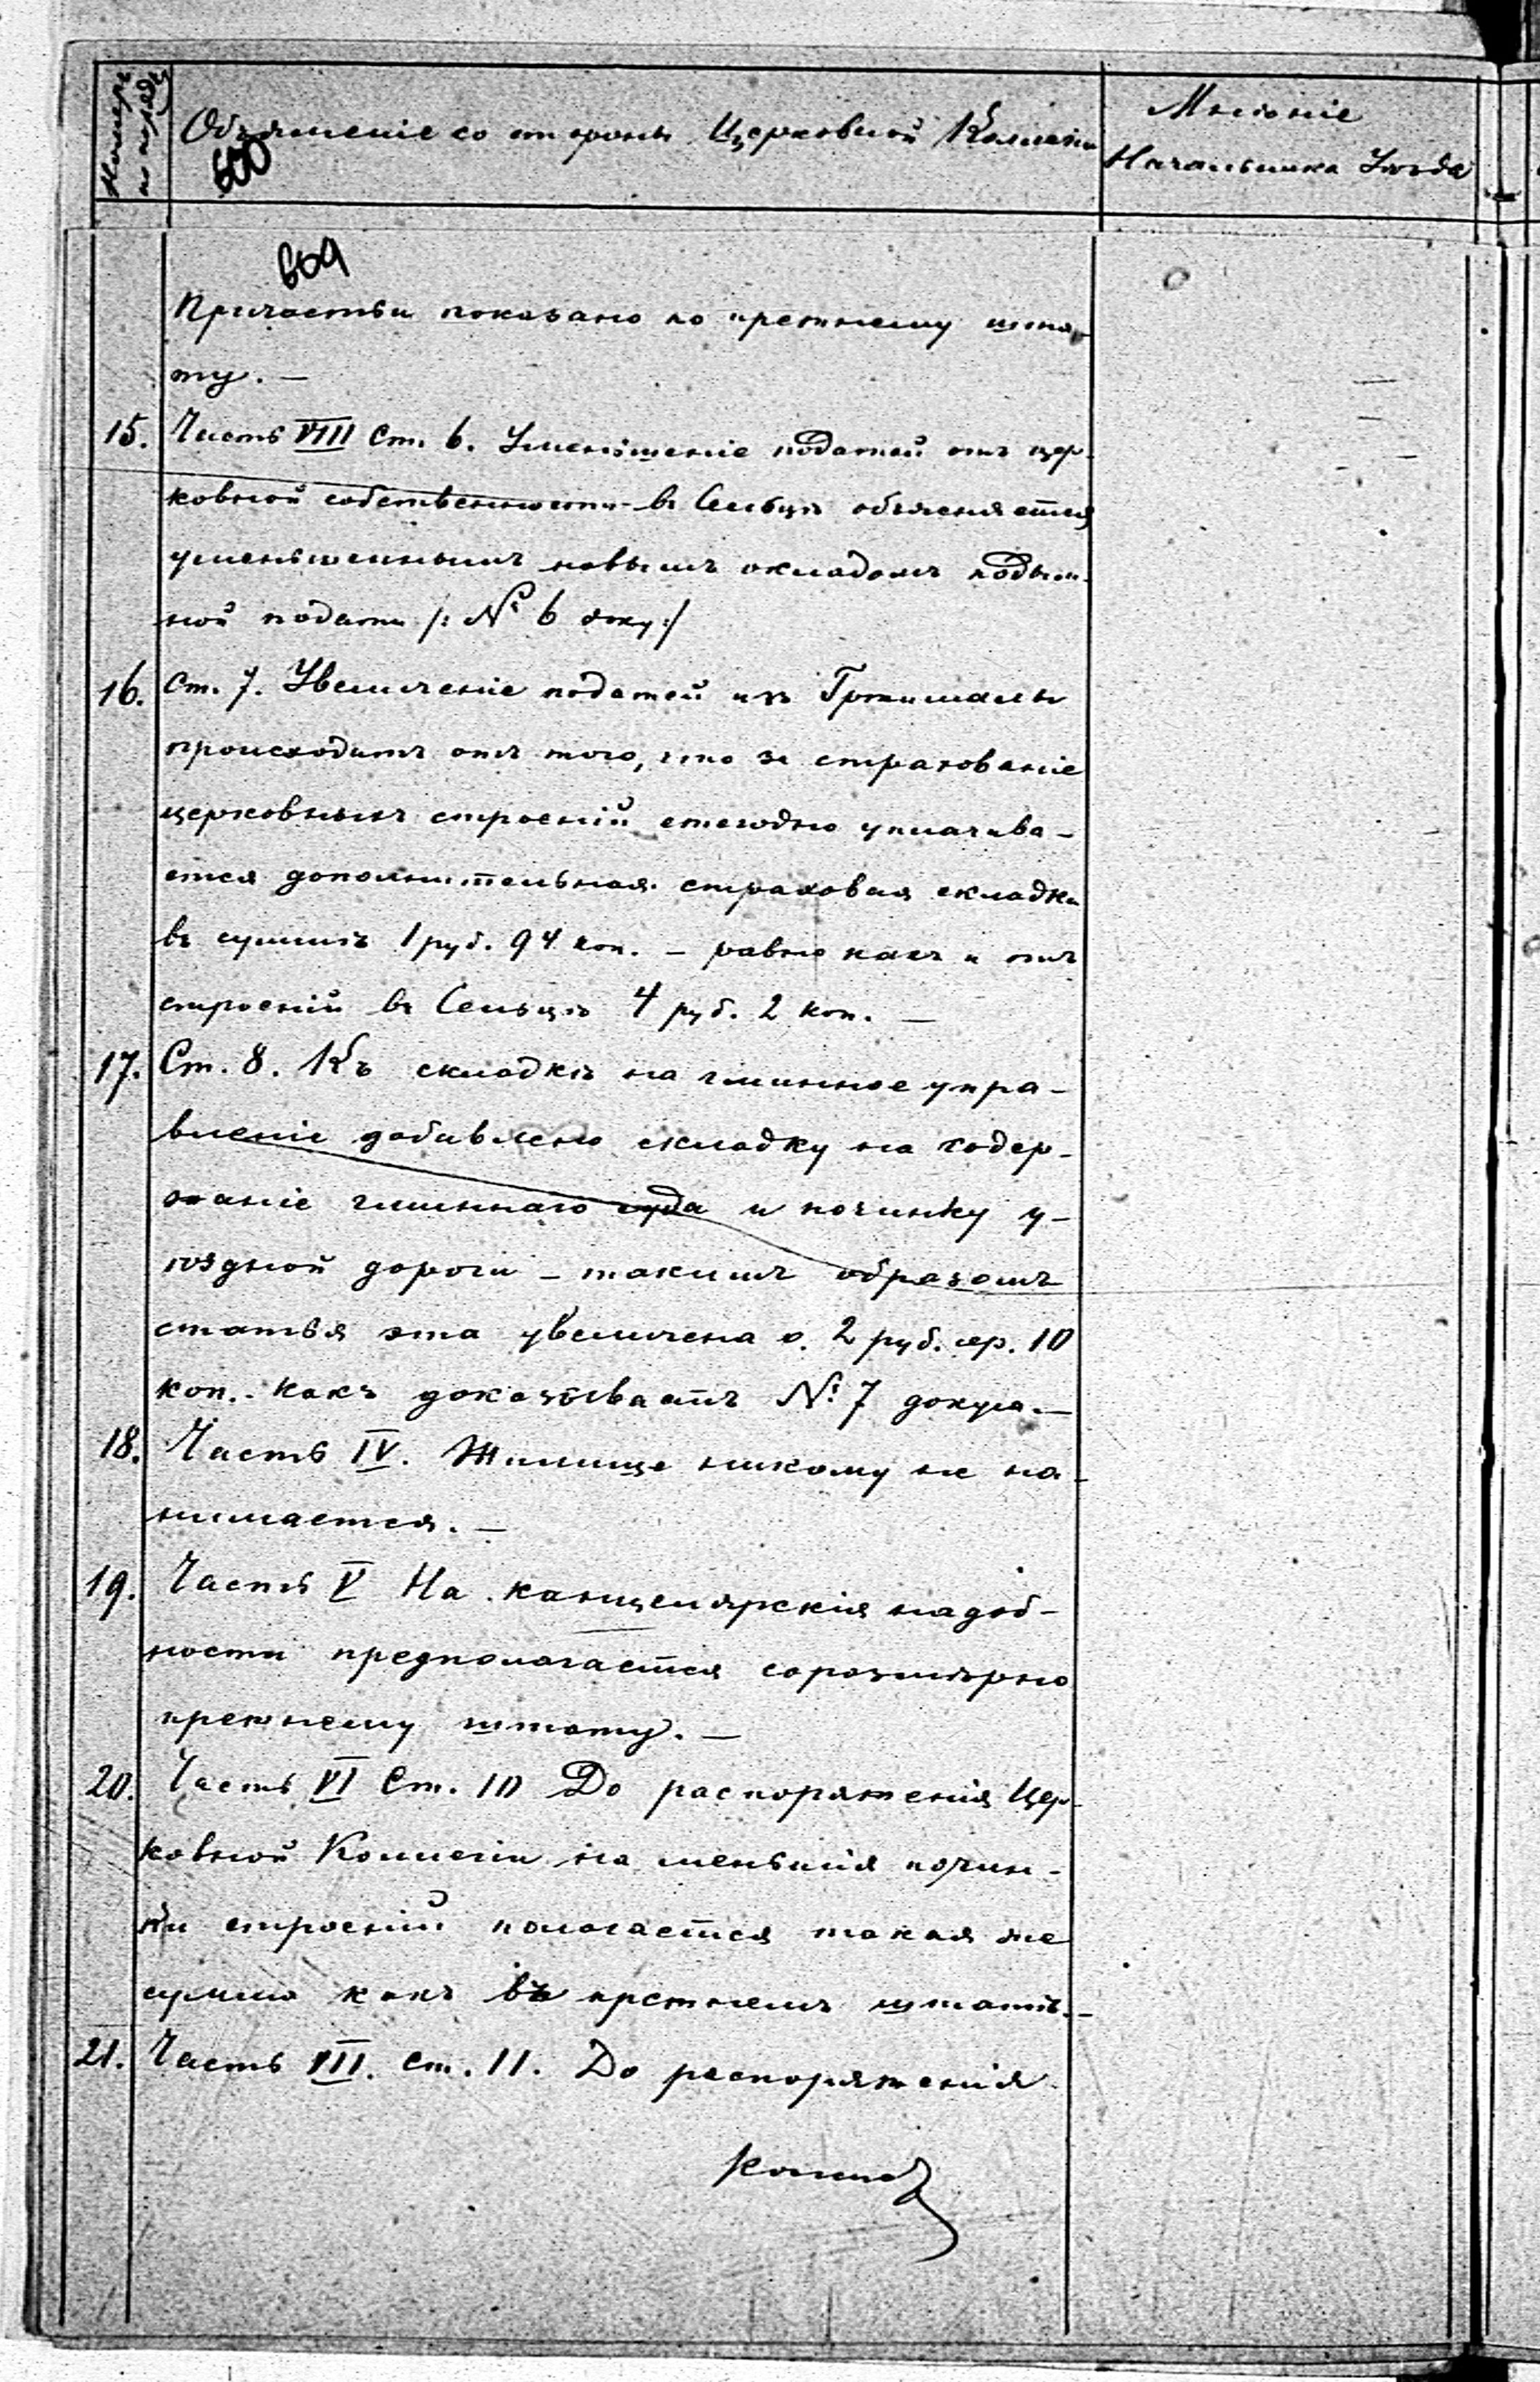 Номеръ по порядку
Объясненіе со стороны Церковной Коллегіи
Мнѣніе
Начальника Уѣзда
600
609
Причастьи показано по прежнему шта-
ту. —
15. Часть VIII Ст. 6. Уменьшеніе податей отъ цер-
ковной собственности въ Сельцѣ объясняется
уменьшеннымъ новымъ окладомъ подым-
ной подати /: № 6 доку:/
16. Ст. 7. Увеличеніе податей изъ
происходитъ отъ того, что за страхованіе
церковныхъ строеній ежегодно уплачива-
ется дополнительная страховая складка
въ суммѣ 1 руб. 94 коп. — равно какъ и отъ
строеній въ Сельцѣ 4 руб. 2 коп. —
17. Ст. 8. Къ складкѣ на гминное упра-
вленіе добавлено складку на содер-
жаніе гминнаго суда и починку у-
ѣздной дороги — такимъ образомъ
статья эта увеличена о. 2 руб. сер. 10
коп. какъ доказываетъ № 7 докум. —
18. Часть IV. Жилище никому не на-
нимается. —
19. Часть V На канцелярскія надоб-
ности предполагается соразмѣрно
прежнему штату. —
20. Часть VI Ст. 10 До распоряженія Цер-
ковной Коллегіи на меньшія почин-
ки строеній полагается такая же
сумма какъ въ прежнемъ штатѣ. —
21. Часть VII. ст. 11. До распоряженія